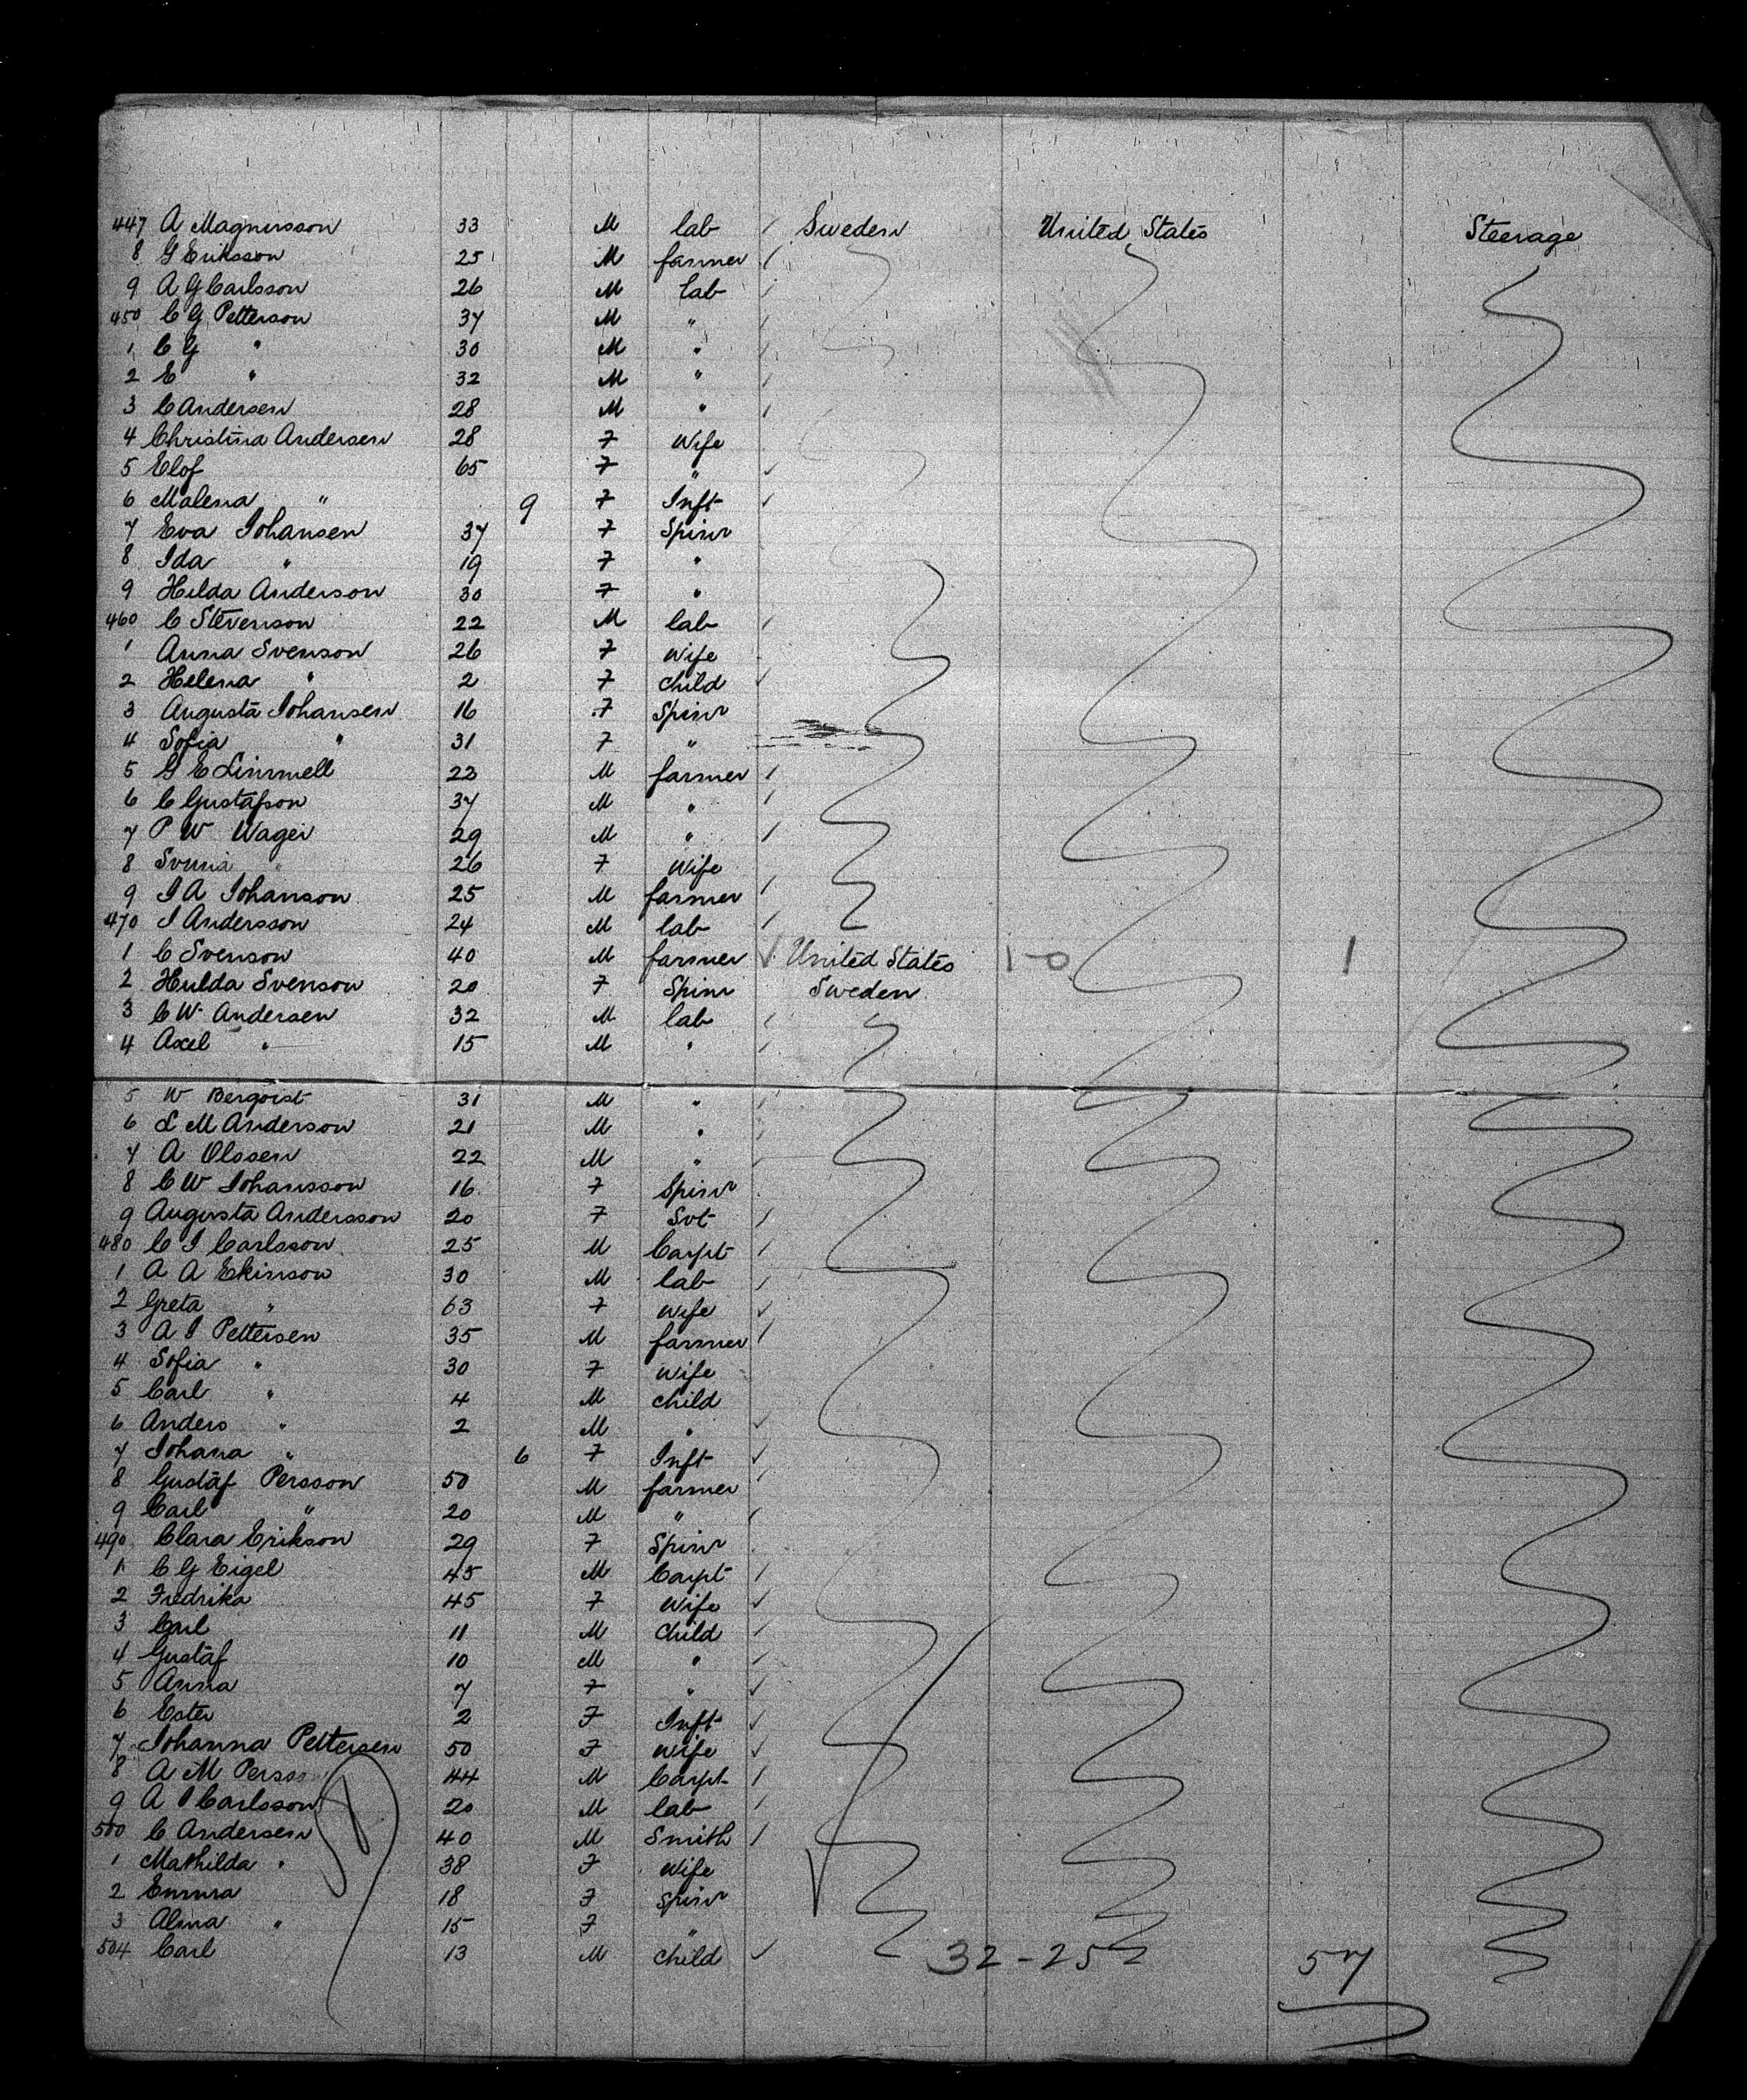 447 A Magnusson 33 M lab / Sweden United States Steerage
8 G Eriksson 25 M farmer /
9 A G Carlsson 26 M lab /
450 C G Petterson 37 M " /
1 C G " 30 M " /
2 E " 32 M " /
3 C Andersen 28 M " /
4 Christina Andersen 28 F Wife
5 Elof 65 F " ✓
6 Malena " 9 F Inft ✓
7 Eva Johansen 37 F Spinr
8 Ida " 19 F "
9 Hilda Anderson 30 F "
460 C Stevenson 22 M lab /
1 Anna Svenson 26 F Wife
2 Helena " 2 F child ✓
3 Augusta Johansen 16 F Spinr
4 Sofia " 31 F "
5 G E Linmell 23 M farmer /
6 C Gustafson 37 M " /
7 P W Wager 29 M " /
8 " 26 F Wife
9 J A Johanson 25 M farmer /
470 J Andersson 24 M lab /
1 C Svenson 40 M farmer ✓ United States 1-0 1
2 Hulda Svenson 20 F Spinr Sweden
3 C W Andersen 32 M lab /
4 Axel " 15 M " /
5 W Bergqist 31 M " /
6 L M Anderson 21 M " /
7 A Olssen 22 M " /
8 C W Johansson 16 F Spinr
9 Augusta Andersson 20 F Svt /
480 C J Carlsson 25 M Carpt /
1 A A Ekinson 30 M lab /
2 Greta " 63 F Wife ✓
3 A J Pettersen 35 M farmer /
4 Sofia " 30 F Wife
5 Carl " 4 M child
6 Anders " 2 M " ✓
7 Johana " 6 F Inft ✓
8 Gustaf Persson 50 M farmer /
9 Carl " 20 M " /
490 Clara Erikson 29 F Spinr
1 C G Eigel 45 M Carpt /
2 Fredrika 45 F Wife ✓
3 Carl 11 M Child /
4 Gustaf 10 M " /
5 Anna 7 F " ✓
6 Ester 2 F Inft ✓
7 Johanna Pettersen 50 F Wife ✓
8 A M Persson 44 M Carpt /
9 A J Carlsson 20 M lab /
500 C Andersen 40 M Smith /
1 Mathilda " 38 F Wife
2 Emma 18 F Spinr
3 Alma " 15 F "
504 Carl 13 M Child ✓ 32-25 57